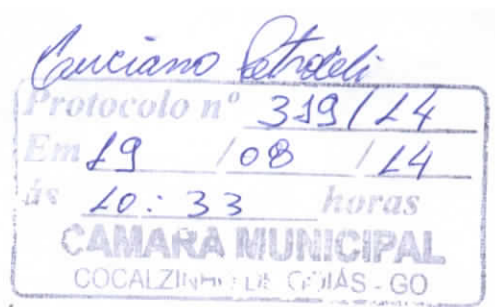 Luciano
Protocolo nº 319/14
Em 19 /08 /14
às 10:33 horas
CAMARA MUNICIPAL
COCALZINHO DE GOIÁS - GO